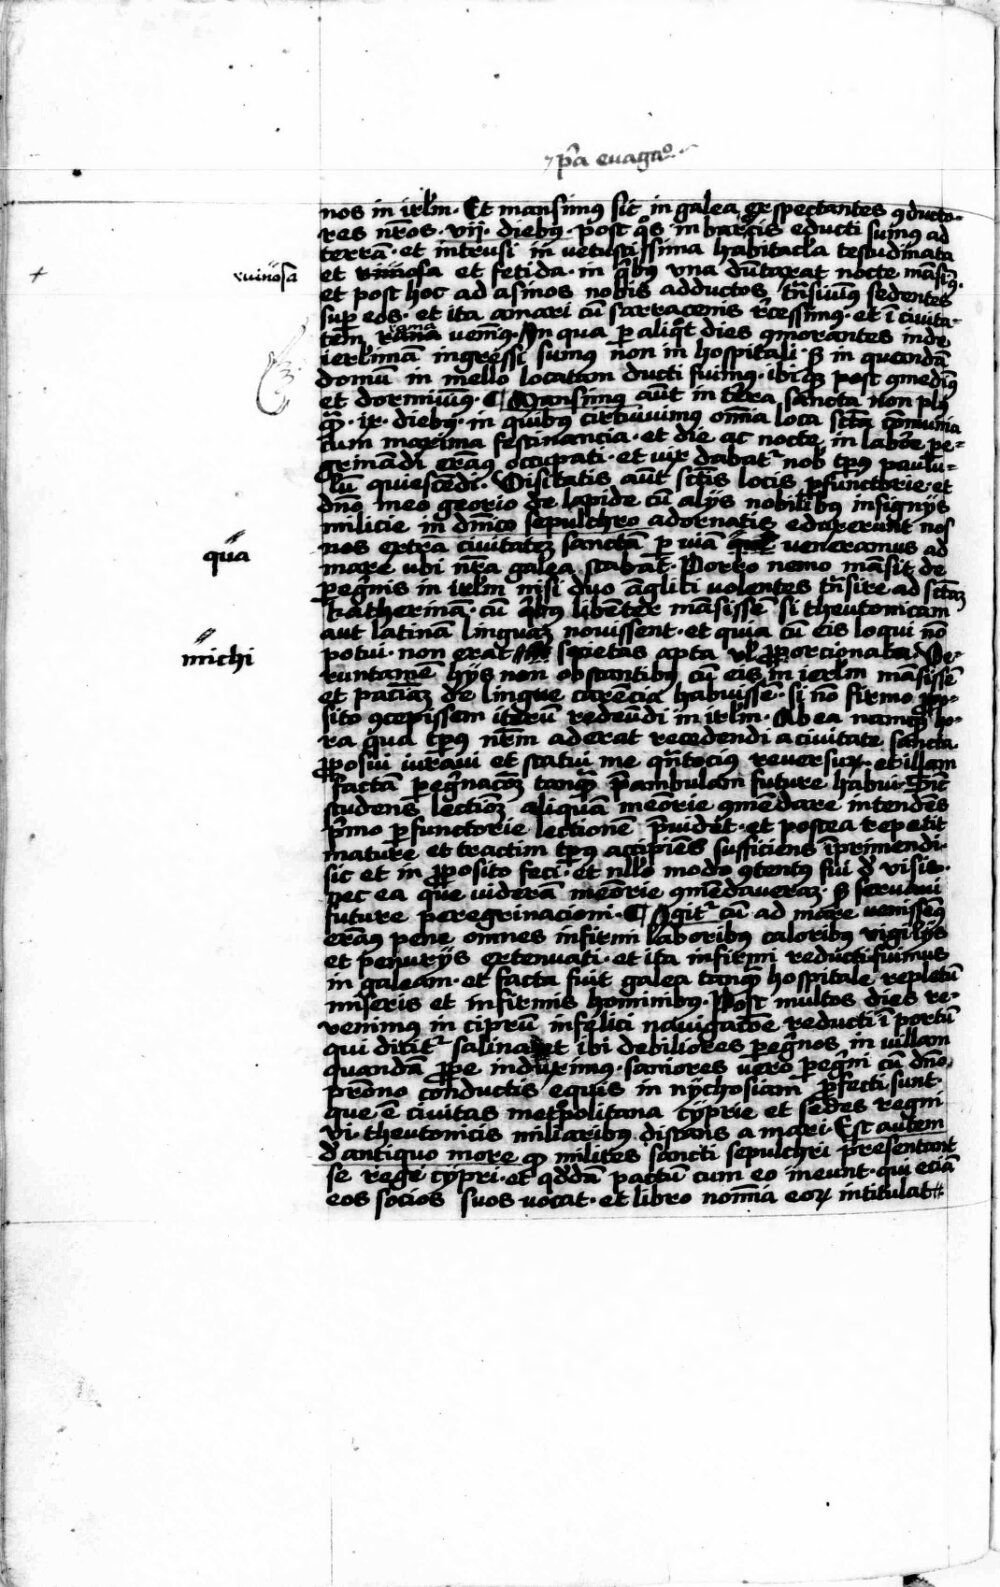 p̄a euagac̄o
nos in irl̄m. Et mansimꝰ sic in galea exspectantes ꝯducto-
res nr̄os. vij. diebꝰ. post q̄s in barcis educti sumus ad
terrā. et intrusi in vetustissima habitacl̄a testudinata
ruinosa
et et fetida. in qͥbꝰ vna dūtaxat nocte mās̄imꝰ.
et post hoc ad asinos nobis adductos tn̄siuimꝰ sedentes
sup̄ eos. et ita amari cū sarracenis rͤcessimꝰ. et ī ciuita-
tem rama venimꝰ. In qua ꝑ aliqͦt dies ꝯmorantes inde
ierl̄imā ingressi sumus non in hospitali. ꝫ in quandā
domū in mello locatam ducti fuimus. ibiqꝫ post ꝯmedimꝰ
et dormiuimꝰ. ¶ Mansimus aūt in terra sancta non plꝰ
qm̄. ix. diebꝰ. in quibus circūiuimus omīa loca sct̄a cōmunia
cum maxima festinancia. et die ac nocte in labore pe-
grinandi eramꝰ occupati. et vix dabatᷣ nob̄ tp̄us paulu-
lū quiescēdi. Visitatis aūt sct̄is locis ꝑfunctorie. et
dn̄o meo georio de lapide cū alijs nobilibus insignijs
milicie in dn̄ico sepulchro adornatis eduxerunt nos
qua
nos extra ciuitatē sanctā ꝑ viā veneramus ad
mare vbi nr̄a galea stabat. Porro nemo māsit de
ꝑegͥnis in irl̄m nisi duo āglici volentes tn̄sire ad sct̄am
katherinā. cū qͥbus libenter māsisse si theutonicam
aut latinā linguaꝫ nouissent. et quia cū eis loqui nō
michi
potui. non erat societas apta vl̄ ꝓporcionata. Ve-
runtamē hijs non obstantibꝰ cū eis in ierl̄m māsissē
et paciēciā de lingue carēcia habuisse. si nō firmo ꝓpo-
sito ꝯcepissem iterū redeundi in irl̄m. Ab ea namqꝫ ho-
ra qua tp̄us nr̄m aderat recedendi a ciuitate sancta
ꝓposui iuraui et statui me qn̄tocius reuersurꝫ. et illam
factā ꝑegͥnac̄oꝫ tanqꝫ p̄ambulam future habui. Sicut
studens lectioꝫ aliquā memorie ꝯmēdare intendēs
pͥmo ꝑfunctorie lectionē p̄uidet. et postea repetit
mature et tractim tp̄us accipies sufficiens īprimendi.
sic et in ꝓposito feci. et nll̄o modo ꝯtentꝰ fui dͤ visis.
nec ea que viderā memorie ꝯmēdaueraꝫ. ꝫ seruaui
future peregrinacioni. ¶ Igitᷣ cū ad mare venissemꝰ
eramꝰ pene omnes infirmi laboribꝰ caloribꝰ vigilijs
et penurijs extenuati. et ita infirmi reducti fuimus
in galeam. et facta fuit galea tanqꝫ hospitale repletū
miseris et infirmis hominibꝰ. Post multos dies re-
venimus in ciprū infelici nauigac̄oe reducti ī portū
qui dicitᷣ salina et ibi debiliores ꝑegͥnos in villam
quandā ꝓpe induximꝰ. saniores vero ꝑegͥni cū dn̄o
prōno conductis equis in nychosiam ꝓfecti sunt.
que ē ciuitas metropolitana cyprie et sedes regni
vi. theutonicis miliaribꝰ distans a mari. Est autem
dͤ antiquo more qꝫ milites sancti sepulchri presentant
se regi cypri. et qddā pactū cum eo ineunt. qui eciā
eos socios suos vocat. et libro nomīa eoꝝ intitulat